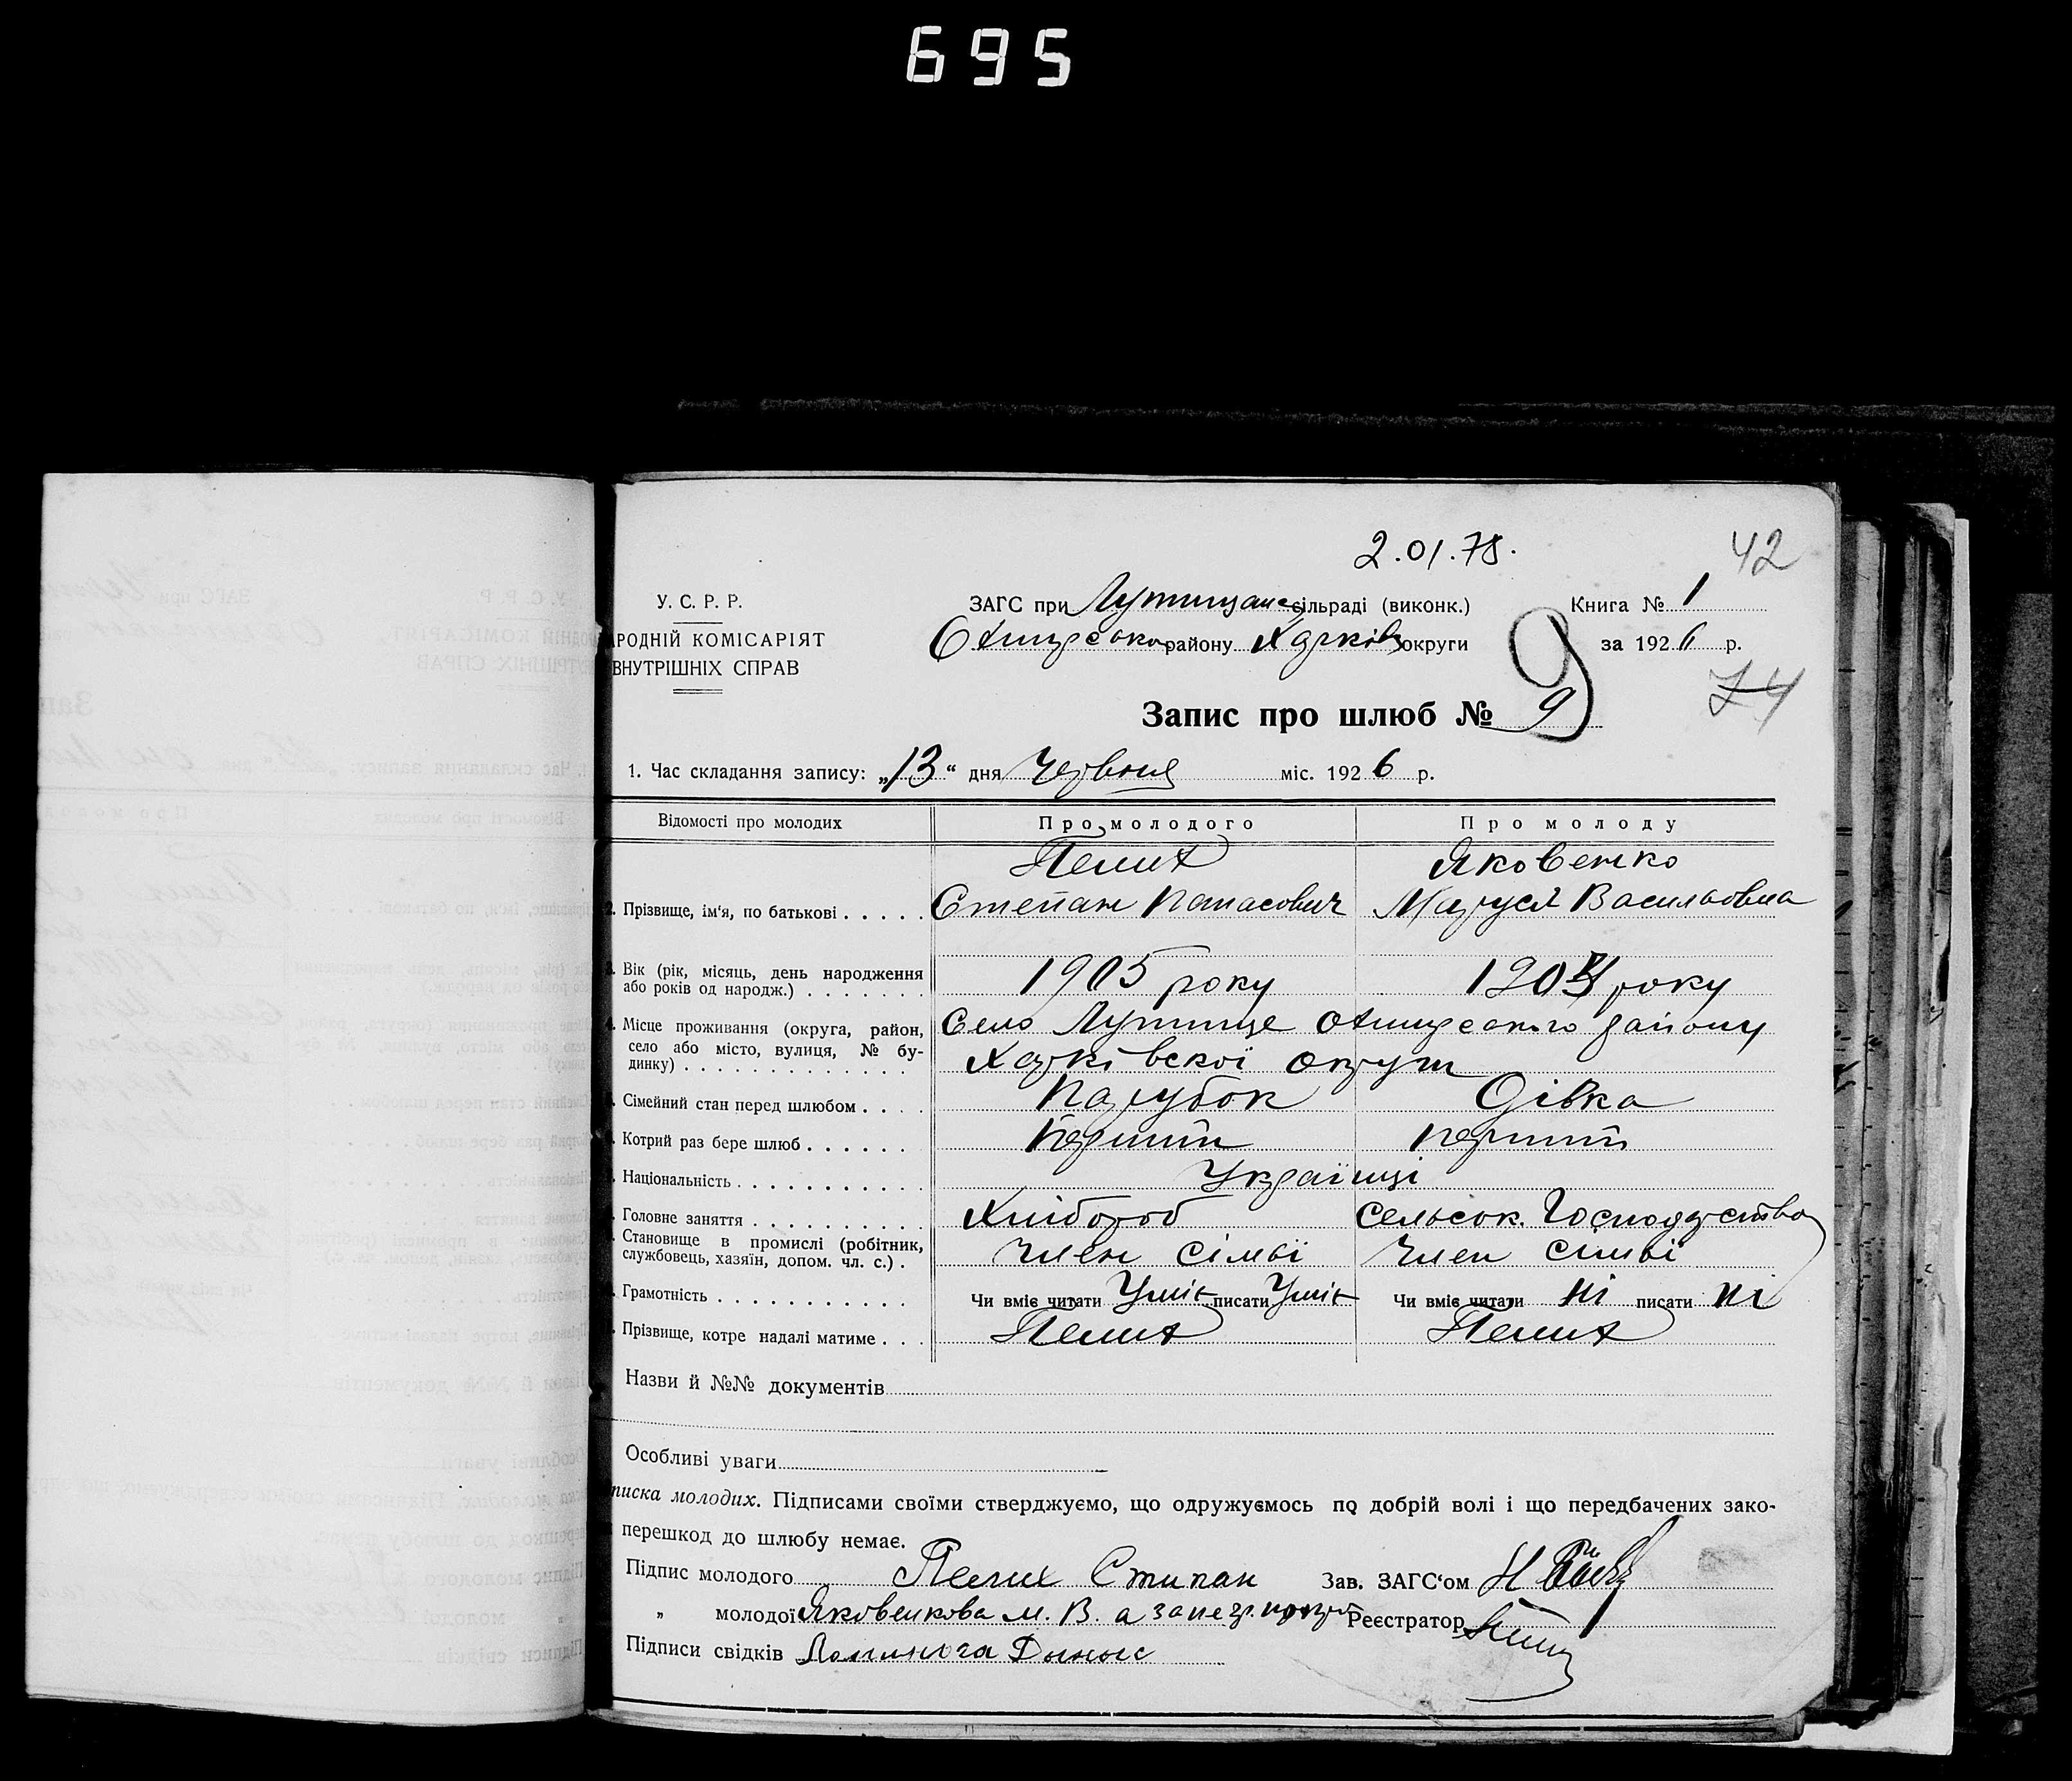 695
2.01.78.
42
У. С. Р. Р.
РОДНІЙ КОМІСАРІЯТ
ВНУТРІШНІХ СПРАВ
ЗАГС при сільраді (виконк.)
району Харків округи
Книга № 1
за 1926 р.
9
74
Запис про шлюб № 9
1. Час складання запису: „13“ дня Червня міс. 1926 р.
Відомості про молодих Про молодого Про молоду
Пелих Яковенко
2. Прізвище, ім'я, по батькові . . . . . Степан Панасович Маруся Васильовна
Вік (рік, місяць, день народження
або років од народж.) . . . . . . . 1905 року року
4. Місце проживання (округа, район, Село Лутище Охтирського району
село або місто, вулиця, № бу-
динку) . . . . . . . . . . . . . Харківської округи
Сімейний стан перед шлюбом . . . . Парубок Дівка
Котрий раз бере шлюб . . . . . . Перший Перший
Національність . . . . . . . . . . . Українці
Головне заняття . . . . . . . . . . Хлібороб Сельськ. Господарство
Становище в промислі (робітник,
службовець, хазяїн, допом. чл. с.) . Член сімьї Член сімьї
Грамотність . . . . . . . . . . . Чи вміє читати Уміє писати Уміє Чи вміє читати ні писати ні
Прізвище, котре надалі матиме . . . Пелих Пелих
Назви й №№ документів
Особливі уваги
писка молодих. Підписами своїми стверджуємо, що одружуємось по добрій волі і що передбачених зако-
перешкод до шлюбу немає.
Підпис молодого Пелих Стипан Зав. ЗАГС'ом
„ молодої Яковенкова М. В. а за неї Реєстратор
Підписи свідків